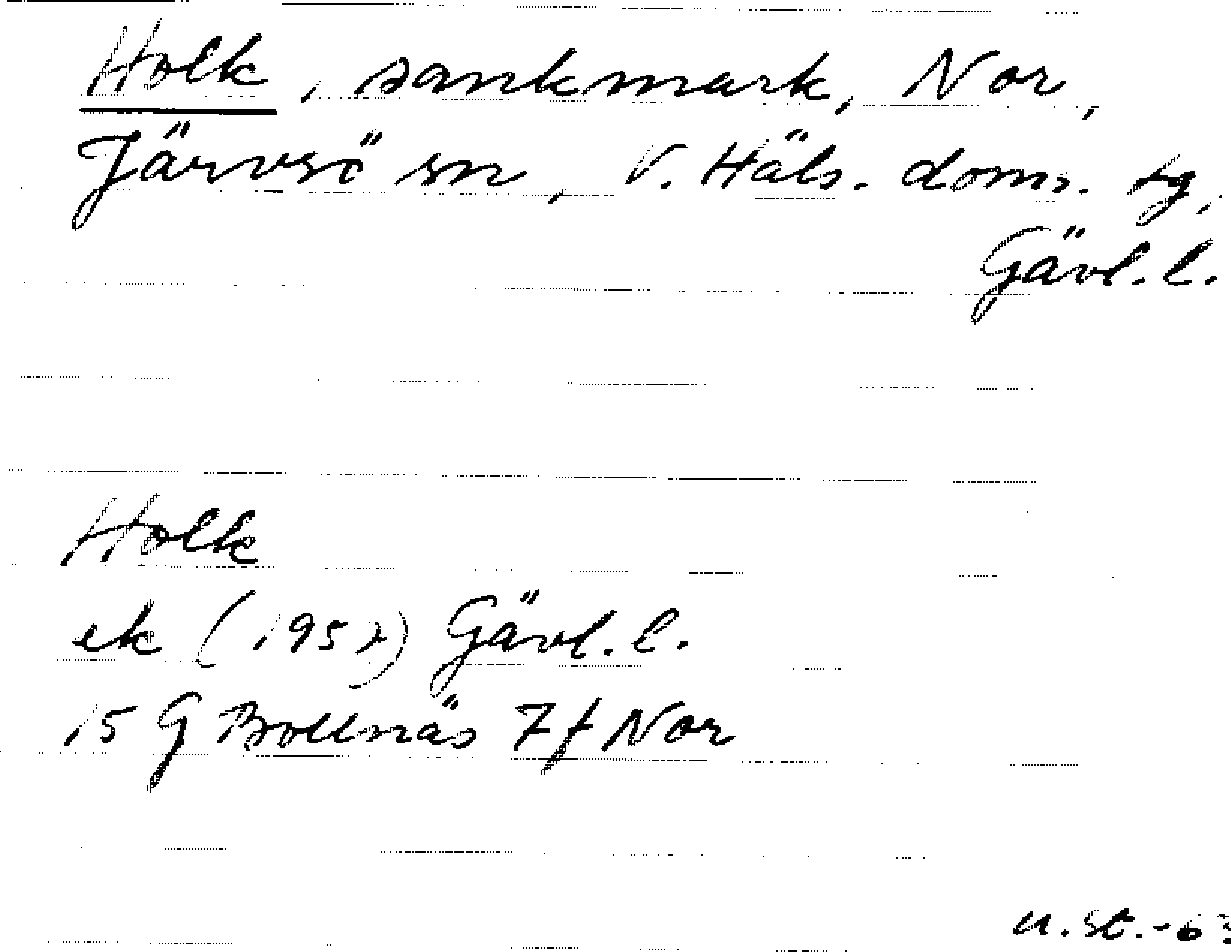 Holk, sankmark, Nor,
Järvsö sn, V. Häls. doms. tg,
Gävl. l.
Holk
ek (1957) Gävl. l.
15 G Bollnäs 7f Nor
U. St.